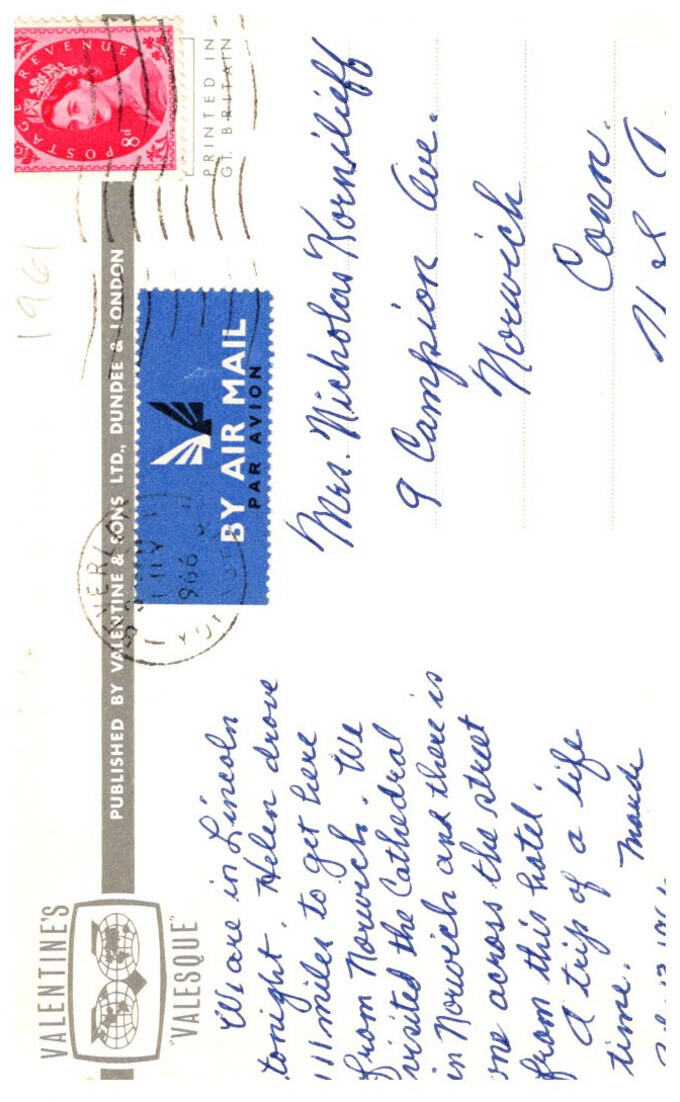 VALENTINE'S
"VALESQUE"
PUBLISHED BY VALENTINE & SONS LTD., DUNDEE & LONDON
1961
POSTAGE REVENUE
8d
PRINTED IN
GT. BRITAIN
BY AIR MAIL
PAR AVION
We are in Lincoln
tonight. Helen drove
111 miles to get here
from Norwich. We
visited the Cathedral
in Norwich and there is
one across the street
from this hotel.
A trip of a life
time. Maude
Mrs. Nicholas Kornilieff
9 Campion Ave.
Norwich
Conn.
U S A